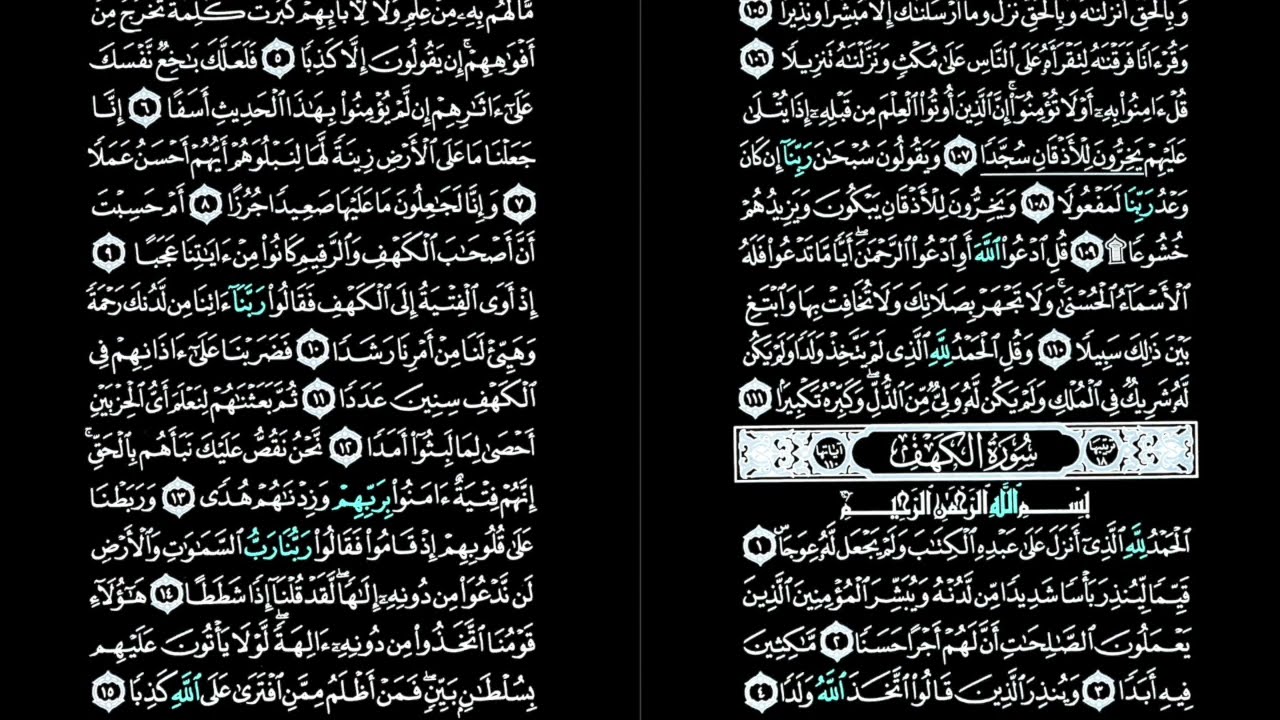 وَبِٱلْحَقِّ أَنزَلْنَٰهُ وَبِٱلْحَقِّ نَزَلَ وَمَآ أَرْسَلْنَٰكَ إِلَّا مُبَشِّرًا وَنَذِيرًا ١٠٥
وَقُرْءَانًا فَرَقْنَٰهُ لِتَقْرَأَهُۥ عَلَى ٱلنَّاسِ عَلَىٰ مُكْثٍ وَنَزَّلْنَٰهُ تَنزِيلًا ١٠٦
قُلْ ءَامِنُوا۟ بِهِۦٓ أَوْ لَا تُؤْمِنُوٓا۟ ۚ إِنَّ ٱلَّذِينَ أُوتُوا۟ ٱلْعِلْمَ مِن قَبْلِهِۦٓ إِذَا يُتْلَىٰ
عَلَيْهِمْ يَخِرُّونَ لِلْأَذْقَانِ سُجَّدًا ١٠٧ وَيَقُولُونَ سُبْحَٰنَ رَبِّنَآ إِن كَانَ
وَعْدُ رَبِّنَا لَمَفْعُولًا ١٠٨ وَيَخِرُّونَ لِلْأَذْقَانِ يَبْكُونَ وَيَزِيدُهُمْ
خُشُوعًا ۩ ١٠٩ قُلِ ٱدْعُوا۟ ٱللَّهَ أَوِ ٱدْعُوا۟ ٱلرَّحْمَٰنَ ۖ أَيًّا مَّا تَدْعُوا۟ فَلَهُ
ٱلْأَسْمَآءُ ٱلْحُسْنَىٰ ۚ وَلَا تَجْهَرْ بِصَلَاتِكَ وَلَا تُخَافِتْ بِهَا وَٱبْتَغِ
بَيْنَ ذَٰلِكَ سَبِيلًا ١١٠ وَقُلِ ٱلْحَمْدُ لِلَّهِ ٱلَّذِى لَمْ يَتَّخِذْ وَلَدًا وَلَمْ يَكُن
لَّهُۥ شَرِيكٌ فِى ٱلْمُلْكِ وَلَمْ يَكُن لَّهُۥ وَلِىٌّ مِّنَ ٱلذُّلِّ ۖ وَكَبِّرْهُ تَكْبِيرًۢا ١١١
ترتيبها ١٨ سُورَةُ الكَهْفِ آياتها ١١٠
بِسْمِ ٱللَّهِ ٱلرَّحْمَٰنِ ٱلرَّحِيمِ
ٱلْحَمْدُ لِلَّهِ ٱلَّذِىٓ أَنزَلَ عَلَىٰ عَبْدِهِ ٱلْكِتَٰبَ وَلَمْ يَجْعَل لَّهُۥ عِوَجَاۜ ١
قَيِّمًا لِّيُنذِرَ بَأْسًا شَدِيدًا مِّن لَّدُنْهُ وَيُبَشِّرَ ٱلْمُؤْمِنِينَ ٱلَّذِينَ
يَعْمَلُونَ ٱلصَّٰلِحَٰتِ أَنَّ لَهُمْ أَجْرًا حَسَنًا ٢ مَّٰكِثِينَ
فِيهِ أَبَدًا ٣ وَيُنذِرَ ٱلَّذِينَ قَالُوا۟ ٱتَّخَذَ ٱللَّهُ وَلَدًا ٤
مَّا لَهُم بِهِۦ مِنْ عِلْمٍ وَلَا لِءَابَآئِهِمْ ۚ كَبُرَتْ كَلِمَةً تَخْرُجُ مِنْ
أَفْوَٰهِهِمْ ۚ إِن يَقُولُونَ إِلَّا كَذِبًا ٥ فَلَعَلَّكَ بَٰخِعٌ نَّفْسَكَ
عَلَىٰٓ ءَاثَٰرِهِمْ إِن لَّمْ يُؤْمِنُوا۟ بِهَٰذَا ٱلْحَدِيثِ أَسَفًا ٦ إِنَّا
جَعَلْنَا مَا عَلَى ٱلْأَرْضِ زِينَةً لَّهَا لِنَبْلُوَهُمْ أَيُّهُمْ أَحْسَنُ عَمَلًا
٧ وَإِنَّا لَجَٰعِلُونَ مَا عَلَيْهَا صَعِيدًا جُرُزًا ٨ أَمْ حَسِبْتَ
أَنَّ أَصْحَٰبَ ٱلْكَهْفِ وَٱلرَّقِيمِ كَانُوا۟ مِنْ ءَايَٰتِنَا عَجَبًا ٩
إِذْ أَوَى ٱلْفِتْيَةُ إِلَى ٱلْكَهْفِ فَقَالُوا۟ رَبَّنَآ ءَاتِنَا مِن لَّدُنكَ رَحْمَةً
وَهَيِّئْ لَنَا مِنْ أَمْرِنَا رَشَدًا ١٠ فَضَرَبْنَا عَلَىٰٓ ءَاذَانِهِمْ فِى
ٱلْكَهْفِ سِنِينَ عَدَدًا ١١ ثُمَّ بَعَثْنَٰهُمْ لِنَعْلَمَ أَىُّ ٱلْحِزْبَيْنِ
أَحْصَىٰ لِمَا لَبِثُوٓا۟ أَمَدًا ١٢ نَّحْنُ نَقُصُّ عَلَيْكَ نَبَأَهُم بِٱلْحَقِّ ۚ
إِنَّهُمْ فِتْيَةٌ ءَامَنُوا۟ بِرَبِّهِمْ وَزِدْنَٰهُمْ هُدًى ١٣ وَرَبَطْنَا
عَلَىٰ قُلُوبِهِمْ إِذْ قَامُوا۟ فَقَالُوا۟ رَبُّنَا رَبُّ ٱلسَّمَٰوَٰتِ وَٱلْأَرْضِ
لَن نَّدْعُوَا۟ مِن دُونِهِۦٓ إِلَٰهًا ۖ لَّقَدْ قُلْنَآ إِذًا شَطَطًا ١٤ هَٰٓؤُلَآءِ
قَوْمُنَا ٱتَّخَذُوا۟ مِن دُونِهِۦٓ ءَالِهَةً ۖ لَّوْلَا يَأْتُونَ عَلَيْهِم
بِسُلْطَٰنٍۭ بَيِّنٍ ۖ فَمَنْ أَظْلَمُ مِمَّنِ ٱفْتَرَىٰ عَلَى ٱللَّهِ كَذِبًا ١٥